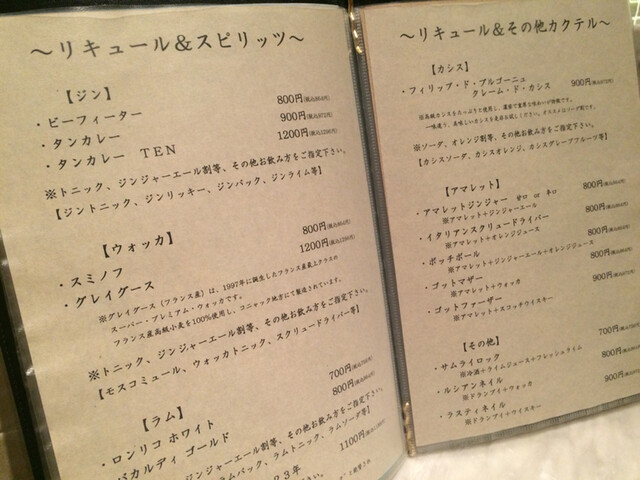 ～リキュール＆スピリッツ～
【ジン】
・ビーフィーター 800円(税込864円)
・タンカレー 900円(税込972円)
・タンカレー TEN 1200円(税込1296円)
※トニック、ジンジャーエール割等、その他お飲み方をご指定下さい。
【ジントニック、ジンリッキー、ジンバック、ジンライム等】
【ウォッカ】
・スミノフ 800円(税込864円)
・グレイグース 1200円(税込1296円)
※グレイグース（フランス産）は、1997年に誕生したフランス産最上クラスの
スーパー・プレミアム・ウォッカです。
フランス産高級小麦を100％使用し、コニャック地方にて製造されています。
※トニック、ジンジャーエール割等、その他お飲み方をご指定下さい。
【モスコミュール、ウォッカトニック、スクリュードライバー等】
【ラム】
・ロンリコ ホワイト 700円
バカルディ ゴールド 800円
ジンジャーエール割等、その他お飲み方をご指定下さい。
ラムバック、ラムトニック、ラムソーダ等】
23年 1100円
～リキュール＆その他カクテル～
【カシス】
・フィリップ・ド・ブルゴーニュ
クレーム・ド・カシス 900円(税込972円)
※ソーダ、オレンジ割等、その他お飲み方をご指定下さい。
【カシスソーダ、カシスオレンジ、カシスグレープフルーツ等】
【アマレット】
・アマレットジンジャー 甘口 or 辛口 800円
※アマレット＋ジンジャーエール
・イタリアンスクリュードライバー 800円
※アマレット＋オレンジジュース
・ボッチボール 800円
※アマレット＋ジンジャーエール＋オレンジジュース
・ゴットマザー 800円
※アマレット＋ウォッカ
・ゴットファーザー 900円
※アマレット＋スコッチウイスキー
【その他】
・サムライロック 700円
※冷酒＋ライムジュース＋フレッシュライム
・ルシアンネイル 800円
※ドランブイ＋ウォッカ
・ラスティネイル 900円
※ドランブイ＋ウイスキー